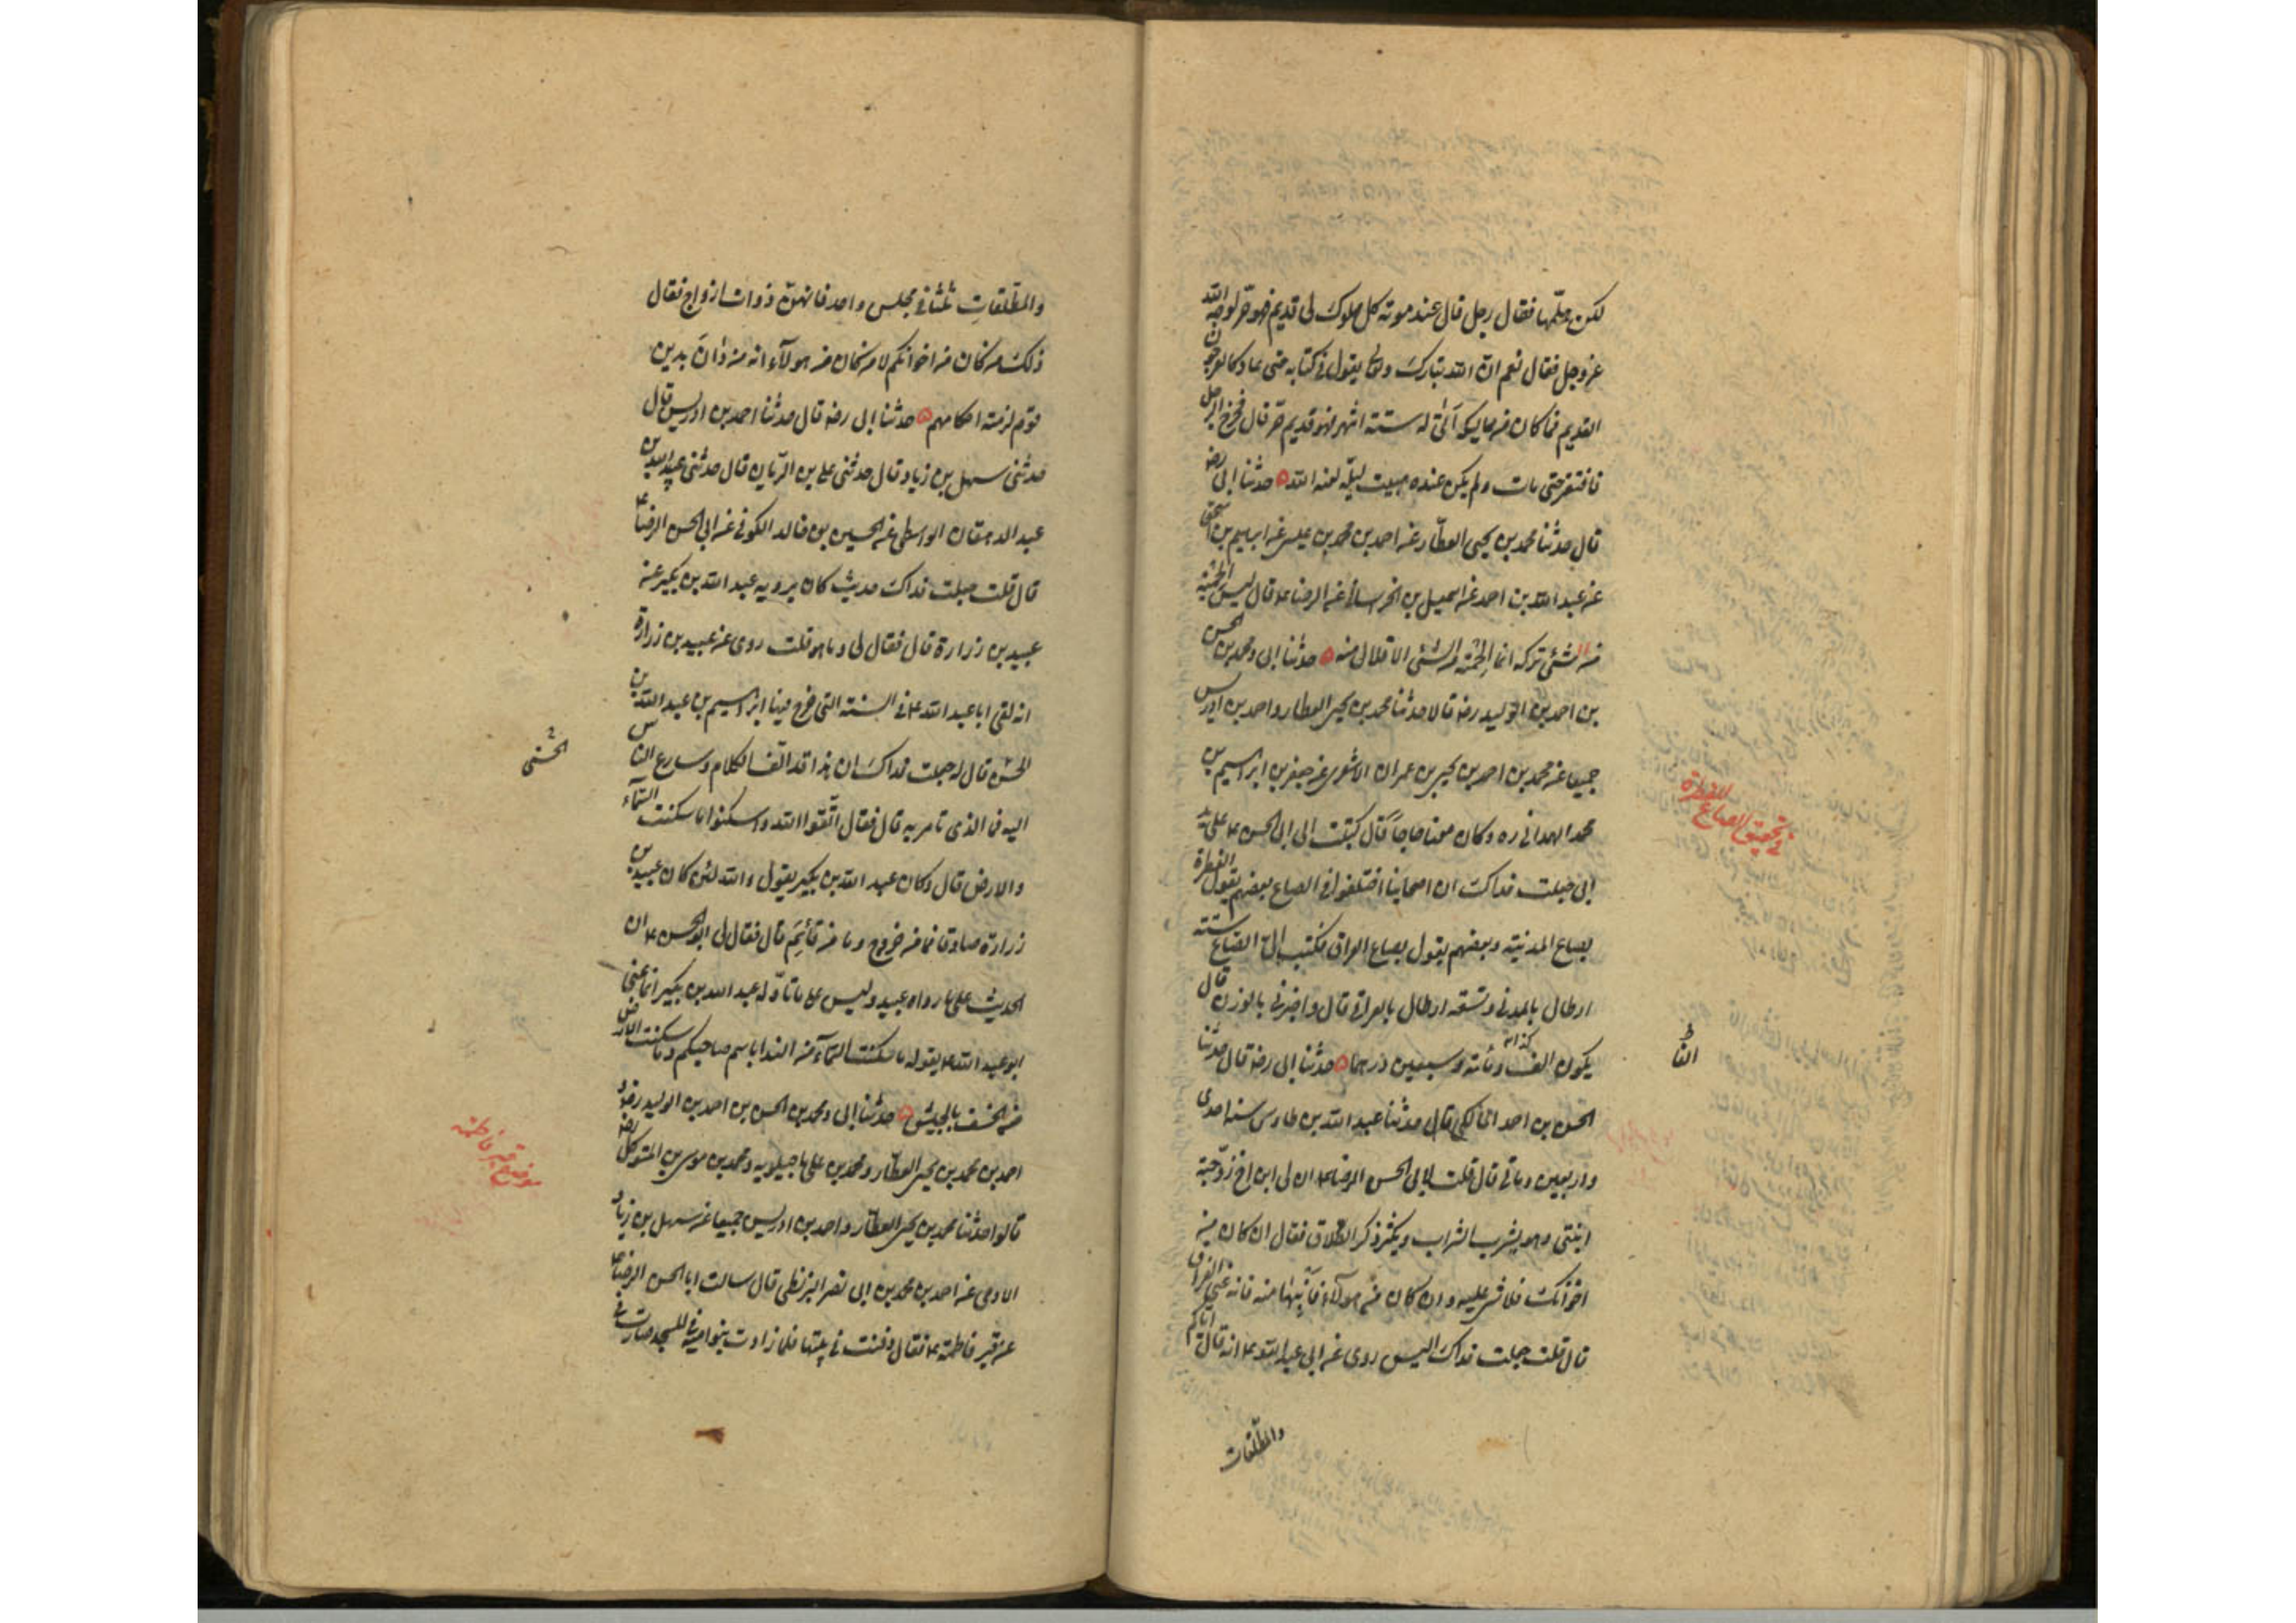 لكن هلمّها فقال رجل قال عند موته كل مملوك لى قديم فهو حرّ لوجه الله
عزوجل فقال نعم ان الله تبارك وتعالى يقول فى كتابه حتى عاد كالعرجون
القديم فما كان من مماليكه اتى له ستة اشهر فهو قديم حرّ قال فخرج الرجل
فافتقر حتى مات ولم يكن عنده مبيت ليلة لعنه الله حدثنا ابى رضه
قال حدثنا محمد بن يحيى العطار عن احمد بن محمد بن عيسى عن ابراهيم بن اسحق
عن عبد الله بن احمد عن اسمعيل بن الخراسانى عن الرضا ع قال ليس الحمية
من الشئ تركه انما الحمية من الشئ الاقلال منه حدثنا ابى ومحمد بن الحسن
بن احمد بن الوليد رضه قالا حدثنا محمد بن يحيى العطار واحمد بن ادريس
جميعا عن محمد بن احمد بن يحيى بن عمران الاشعرى عن جعفر بن ابراهيم بن
محمد الهمدانى ره وكان معنا حاجا قال كتبت الى ابى الحسن ع على يد
ابى جعلت فداك ان اصحابنا اختلفوا فى الصاع بعضهم يقول الفطرة
بصاع المدنية وبعضهم يقول بصاع العراق فكتب الىّ الصاع ستة
ارطال بالمدنى وتسعة ارطال بالعراقى قال واخبرنى بالوزن قال
يكون الف كذا ومائة وسبعين درهما حدثنا ابى رضه قال حدثنا
الحسن بن احمد المالكى قال حدثنا عبد الله بن طاوس سنة احدى
واربعين وماتى قال قلت لابى الحسن الرضا ع ان لى ابن اخ زوّجته
ابنتى وهو يشرب الشراب ويكثر ذكر الطلاق فقال ان كان من
اخوانك فلا شئ عليه وان كان من هولاء فابنها منه فانه عنى الفراق
قال قلت جعلت فداك اليس روى عن ابى عبد الله ع انه قال اياكم
والمطلقات
فى تحقيق الصاع للفطرة
الفا
والمطلّقاتِ ثلثا فى مجلس واحد فانهنّ ذوات ازواج فقال
ذلك من كان من اخوانكم لا من كان من هولآء انه من دان بدين
قوم لزمته احكامهم حدثنا ابى رضه قال حدثنا احمد بن ادريس قال
حدثنى سهل بن زياد قال حدثنى على بن الريان قال حدثنى عبيد الله بن
عبد الله الدهقان الواسطى عن الحسين بن خالد الكوفى عن ابى الحسن الرضا ع
قال قلت جعلت فداك حديث كان يرويه عبد الله بن بكير عن
عبيد بن زرارة قال فقال لى وما هو قلت روى عن عبيد بن زرارة
انه لقى ابا عبد الله ع فى السنة التى خرج فيها ابراهيم بن عبد الله بن
الحسن قال له جعلت فداك ان هذا قد الّف الكلام وسارع الناس
اليه فما الذى تامر به قال فقال اتّقوا الله واسكنوا ما سكنت السّمآء
والارض قال وكان عبد الله بن بكير يقول والله لئن كان عبيد بن
زرارة صادقا فما من خروج وما من قائم قال فقال لى ابو الحسن ع ان
الحديث على ما رواه عبيد وليس على ما تاوّله عبد الله بن بكير انما عنى
ابو عبد الله ع بقوله ما سكنت السّمآء من الندا باسم صاحبكم وما سكنت الارض
من الخسف بالجيش حدثنا ابى ومحمد بن الحسن بن احمد بن الوليد رضه و
احمد بن محمد بن يحيى العطّار ومحمد بن على ماجيلويه ومحمد بن موسى بن المتوكل رضه
قالوا حدثنا محمد بن يحيى العطّار واحمد بن ادريس جميعا عن سهل بن زياد
الادمى عن احمد بن محمد بن ابى نصر البزنطى قال سالت ابا الحسن الرضا ع
عن قبر فاطمة ع فقال دفنت فى بيتها فلما زادت بنو امية فى المسجد صارت فى
الحسنى
موضع قبر فاطمة